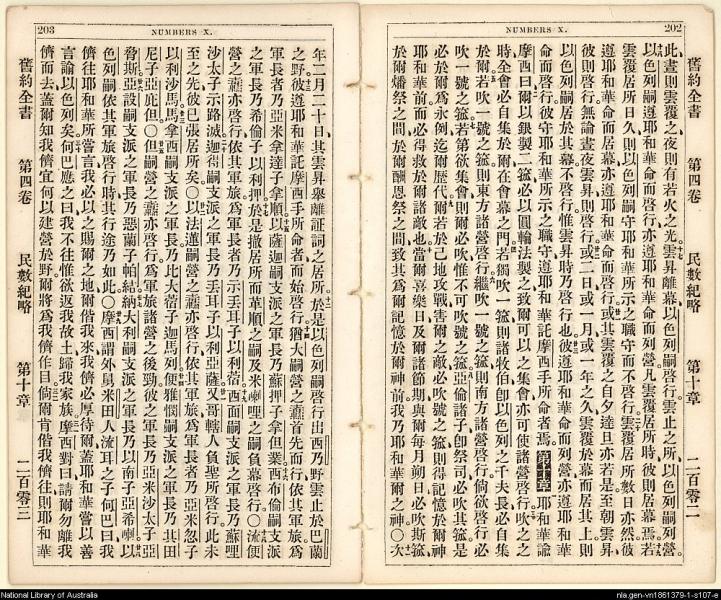 202
NUMBERS X.
舊約全書 第四卷 民數紀略 第十章 二百零二
此晝則雲覆之夜則有若火之光雲昇離幕以色列嗣啓行雲止之所以色列嗣列營
以色列嗣遵耶和華命而啓行亦遵耶和華命而列營凡雲覆居所時彼則居幕焉若
雲覆居所日久則以色列嗣守耶和華所示之職守而不啓行雲覆居所數日亦然彼
遵耶和華命而居幕亦遵耶和華命而啓行或其雲覆之自夕達旦亦若是至朝雲昇
彼則啓行無論晝夜雲昇則啓行或二日或一月或一年之久雲覆於幕而居其上則
以色列嗣居於其幕不啓行惟雲昇時乃啓行也彼遵耶和華命而列營亦遵耶和華
命而啓行彼守耶和華所示之職守遵耶和華託摩西手所命者焉第十章耶和華諭
摩西曰爾以銀製二箛必以圓輪法製之致爾可以之集會亦可使諸營啓行吹之之
時全會必自集於爾在會幕之門若獨吹一箛則諸牧伯卽以色列之千夫長必自集
於爾若吹一號之箛則東方諸營啓行繼吹一號之箛則南方諸營啓行倘欲啓行必
吹一號之箛若第欲集會則爾必吹惟不可吹號之箛亞倫諸子卽祭司必吹其箛是
爲爾永例迄爾歷代爾若於己地攻戰害爾之敵必吹號之箛則得記憶於爾神
耶和華前而必得救於爾諸敵也當爾喜樂日及爾諸節期與爾每月朔日必吹斯箛
於爾燔祭之間於爾酬恩祭之間致其爲爾記憶於爾神前我乃耶和華爾之神○次
203
NUMBERS X.
年二月二十日其雲昇舉離証詞之居所於是以色列嗣啓行出西乃野雲止於巴蘭
之野彼遵耶和華託摩西手所命者而始啓行猶大嗣營之纛首先而行依其軍旅爲
其軍長者乃亞米拿達子拿順以薩迦嗣支派之軍長乃蘇押子拿但業西布倫嗣支派
之軍長乃希倫子以利押於是撤居所而革順之嗣及米喇哩之嗣負幕啓行○流便
營之纛亦啓行依其軍旅爲軍長者乃示丢耳子以利蓿西面嗣支派之軍長乃蘇哩
沙太子示路滅迦得嗣支派之軍長乃丢耳子以利亞薩哥轄人負聖所啓行此未
至之先彼已張居所矣○以法蓮嗣營之纛亦啓行依其軍旅爲軍長者乃亞米忽子
以利沙馬馬拿西嗣支派之軍長乃比大蓿子迦馬列便雅憫嗣支派之軍長乃其田
尼子亞庇但○但嗣營之纛亦啓行爲軍旅諸營之後勁彼之軍長乃亞米沙太子亞
希斯亞設嗣支派之軍長乃惡蘭子帕結納大利嗣支派之軍長乃以南子亞希喇以
色列嗣依其軍旅啓行時其行途乃如此○摩西謂外舅米田人流耳之子何巴曰我
儕往耶和華所嘗言我必以之賜爾之地爾偕我來我儕必厚待爾蓋耶和華嘗以善
言論以色列矣何巴應之曰我不往惟欲返我故土歸我家族摩西對曰請爾勿離我
儕而去蓋爾知我儕宜何以建營於野爾將爲我儕作目倘爾肯偕我儕往則耶和華
舊約全書 第四卷 民數紀略 第十章 二百零三
National Library of Australia
nla.gen-vn1861379-1-s107-e